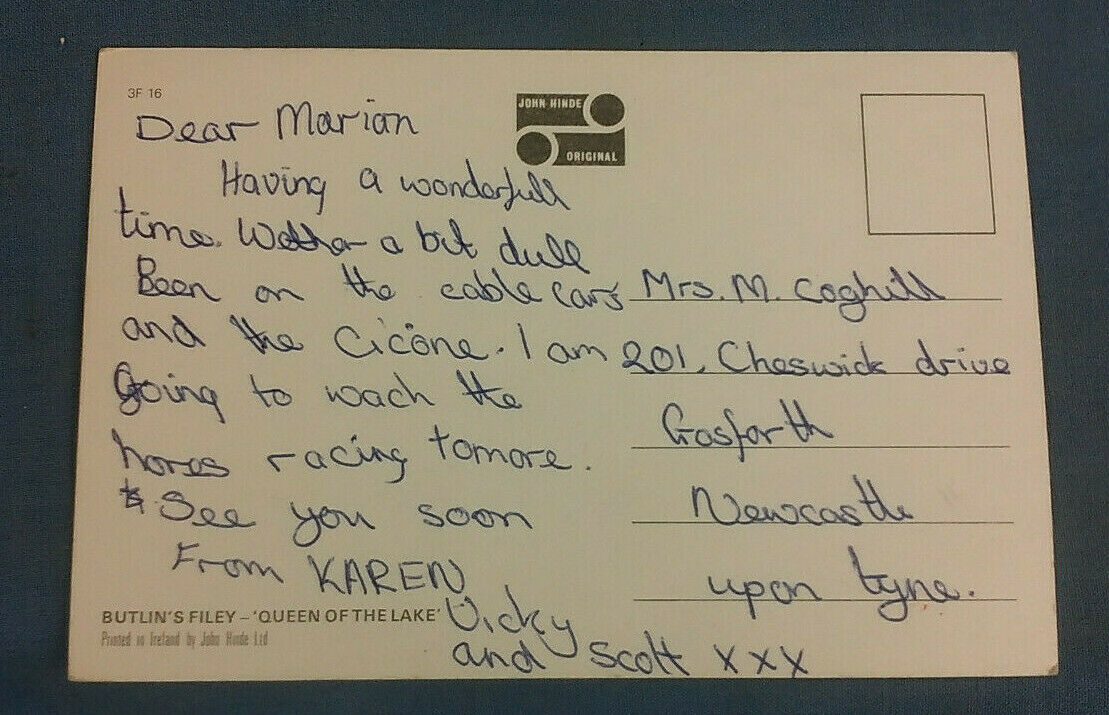 3F 16
JOHN HINDE
ORIGINAL
Dear Marian
Having a wonderfull
time. Wether a bit dull
Been on the cable cars
and the Cicone. I am
Going to wach the
hores racing tomore.
See you soon
From KAREN
Vicky
and Scott xxx
Mrs. M. Coghill
201, Cheswick drive
Gosforth
Newcastle
upon tyne.
BUTLIN'S FILEY – 'QUEEN OF THE LAKE'
Printed in Ireland by John Hinde Ltd